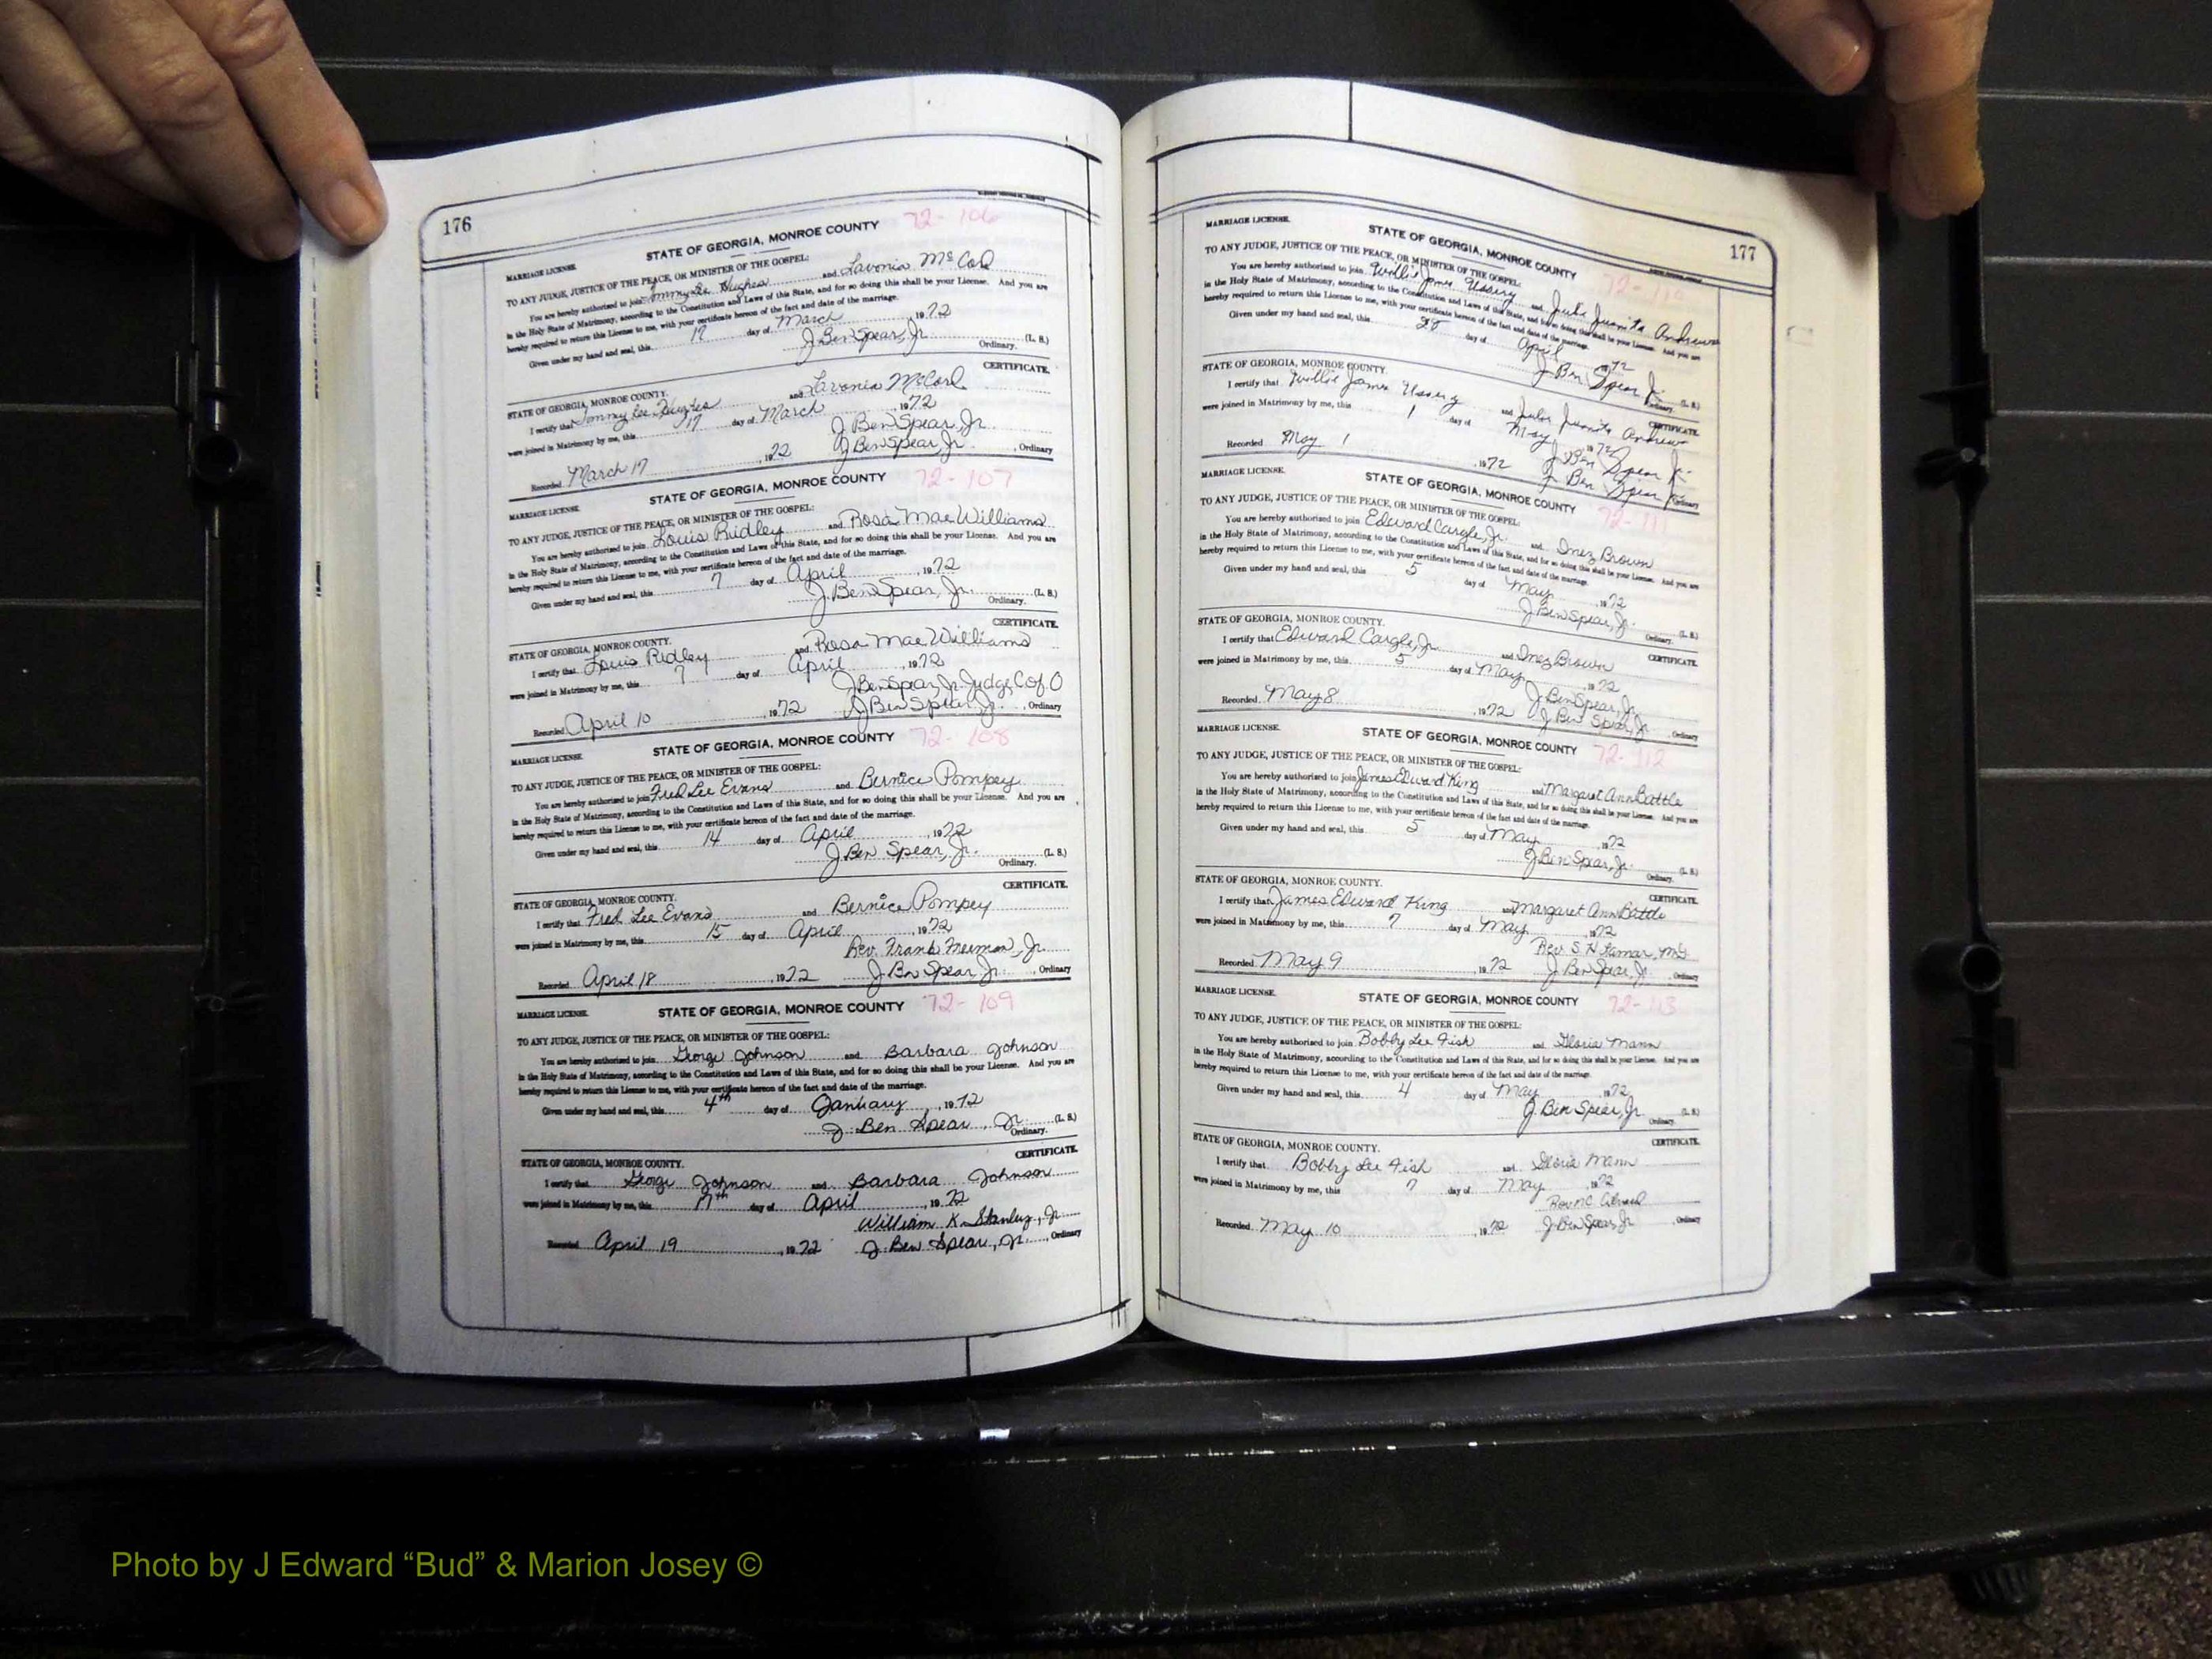 176
72-106
STATE OF GEORGIA, MONROE COUNTY
MARRIAGE LICENSE.
TO ANY JUDGE, JUSTICE OF THE PEACE, OR MINISTER OF THE GOSPEL:
You are hereby authorized to join Lee Hughes and Lavonia McCord
in the Holy State of Matrimony, according to the Constitution and Laws of this State, and for so doing this shall be your License. And you are
hereby required to return this License to me, with your certificate hereon of the fact and date of the marriage.
Given under my hand and seal, this 17 day of March, 1972
J Ben Spear, Jr. (L. S.)
Ordinary.
CERTIFICATE.
STATE OF GEORGIA, MONROE COUNTY.
I certify that Lee Hughes and Lavonia McCord
were joined in Matrimony by me, this 17 day of March 1972
J Ben Spear, Jr.
Recorded March 17, 1972 J Ben Spear, Jr., Ordinary
72-107
STATE OF GEORGIA, MONROE COUNTY
MARRIAGE LICENSE.
TO ANY JUDGE, JUSTICE OF THE PEACE, OR MINISTER OF THE GOSPEL:
You are hereby authorized to join Louis Ridley and Rosa Mae Williams
in the Holy State of Matrimony, according to the Constitution and Laws of this State, and for so doing this shall be your License. And you are
hereby required to return this License to me, with your certificate hereon of the fact and date of the marriage.
Given under my hand and seal, this 7 day of April, 1972
J Ben Spear, Jr. (L. S.)
Ordinary.
CERTIFICATE.
STATE OF GEORGIA, MONROE COUNTY.
I certify that Louis Ridley and Rosa Mae Williams
were joined in Matrimony by me, this 7 day of April, 1972
J Ben Spear, Jr. Judge, C of O
Recorded April 10, 1972 J Ben Spear, Jr., Ordinary
72-108
STATE OF GEORGIA, MONROE COUNTY
MARRIAGE LICENSE.
TO ANY JUDGE, JUSTICE OF THE PEACE, OR MINISTER OF THE GOSPEL:
You are hereby authorized to join Fred Lee Evans and Bernice Pompey
in the Holy State of Matrimony, according to the Constitution and Laws of this State, and for so doing this shall be your License. And you are
hereby required to return this License to me, with your certificate hereon of the fact and date of the marriage.
Given under my hand and seal, this 14 day of April, 1972
J Ben Spear, Jr. (L. S.)
Ordinary.
CERTIFICATE.
STATE OF GEORGIA, MONROE COUNTY.
I certify that Fred Lee Evans and Bernice Pompey
were joined in Matrimony by me, this 15 day of April, 1972
Rev. Frank Jr.
Recorded April 18, 1972 J Ben Spear, Jr., Ordinary
72-109
MARRIAGE LICENSE. STATE OF GEORGIA, MONROE COUNTY
TO ANY JUDGE, JUSTICE OF THE PEACE, OR MINISTER OF THE GOSPEL:
You are hereby authorized to join George Johnson and Barbara Johnson
in the Holy State of Matrimony, according to the Constitution and Laws of this State, and for so doing this shall be your License. And you are
hereby required to return this License to me, with your certificate hereon of the fact and date of the marriage.
Given under my hand and seal, this 4th day of January, 1972
J. Ben Spear, Jr. (L. S.)
Ordinary.
CERTIFICATE.
STATE OF GEORGIA, MONROE COUNTY.
I certify that George Johnson and Barbara Johnson
were joined in Matrimony by me, this 17th day of April, 1972
William K. Stanley, Jr.
Recorded April 19, 1972 J. Ben Spear, Jr., Ordinary
177
MARRIAGE LICENSE. STATE OF GEORGIA, MONROE COUNTY
TO ANY JUDGE, JUSTICE OF THE PEACE, OR MINISTER OF THE GOSPEL:
You are hereby authorized to join Willie James Ussery and Juanita Andrews
in the Holy State of Matrimony, according to the Constitution and Laws of this State, and for so doing this shall be your License. And you are
hereby required to return this License to me, with your certificate hereon of the fact and date of the marriage.
Given under my hand and seal, this 28 day of April 1972
J. Ben Spear Jr. (L. S.)
Ordinary.
CERTIFICATE.
STATE OF GEORGIA, MONROE COUNTY.
I certify that Willie James Ussery and Juanita Andrews
were joined in Matrimony by me, this 1 day of May 1972
J Ben Spear Jr.
Recorded May 1, 1972 J Ben Spear Jr. Ordinary
72-111
MARRIAGE LICENSE. STATE OF GEORGIA, MONROE COUNTY
TO ANY JUDGE, JUSTICE OF THE PEACE, OR MINISTER OF THE GOSPEL:
You are hereby authorized to join Edward Cargle, Jr. and Inez Brown
in the Holy State of Matrimony, according to the Constitution and Laws of this State, and for so doing this shall be your License. And you are
hereby required to return this License to me, with your certificate hereon of the fact and date of the marriage.
Given under my hand and seal, this 5 day of May, 1972
J Ben Spear, Jr. (L. S.)
Ordinary.
CERTIFICATE.
STATE OF GEORGIA, MONROE COUNTY.
I certify that Edward Cargle, Jr. and Inez Brown
were joined in Matrimony by me, this 5 day of May, 1972
J Ben Spear, Jr.
Recorded May 8, 1972 J Ben Spear, Jr., Ordinary
72-112
MARRIAGE LICENSE. STATE OF GEORGIA, MONROE COUNTY
TO ANY JUDGE, JUSTICE OF THE PEACE, OR MINISTER OF THE GOSPEL:
You are hereby authorized to join James Edward King and Margaret Ann Battle
in the Holy State of Matrimony, according to the Constitution and Laws of this State, and for so doing this shall be your License. And you are
hereby required to return this License to me, with your certificate hereon of the fact and date of the marriage.
Given under my hand and seal, this 5 day of May, 1972
J Ben Spear, Jr. (L. S.)
Ordinary.
CERTIFICATE.
STATE OF GEORGIA, MONROE COUNTY.
I certify that James Edward King and Margaret Ann Battle
were joined in Matrimony by me, this 7 day of May, 1972
Rev. S. H.
Recorded May 9, 1972 J Ben Spear, Jr., Ordinary
72-113
MARRIAGE LICENSE. STATE OF GEORGIA, MONROE COUNTY
TO ANY JUDGE, JUSTICE OF THE PEACE, OR MINISTER OF THE GOSPEL:
You are hereby authorized to join Bobby Lee Fish and Gloria Mann
in the Holy State of Matrimony, according to the Constitution and Laws of this State, and for so doing this shall be your License. And you are
hereby required to return this License to me, with your certificate hereon of the fact and date of the marriage.
Given under my hand and seal, this 4 day of May, 1972
J. Ben Spear, Jr. (L. S.)
Ordinary.
CERTIFICATE.
STATE OF GEORGIA, MONROE COUNTY.
I certify that Bobby Lee Fish and Gloria Mann
were joined in Matrimony by me, this 7 day of May, 1972
Recorded May 10, 1972 J Ben Spear, Jr. Ordinary
Photo by J Edward “Bud” & Marion Josey ©